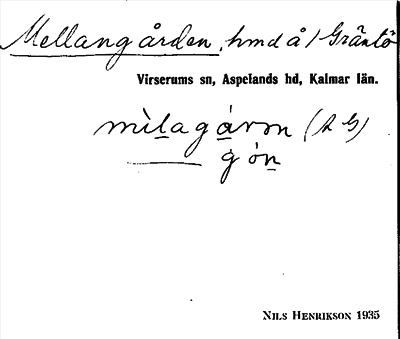 Mellangården, hmd å 1 Gräntö
Virserums sn, Aspelands hd, Kalmar län.
mìlagárₔn (A G)
gón
NILS HENRIKSON 1935